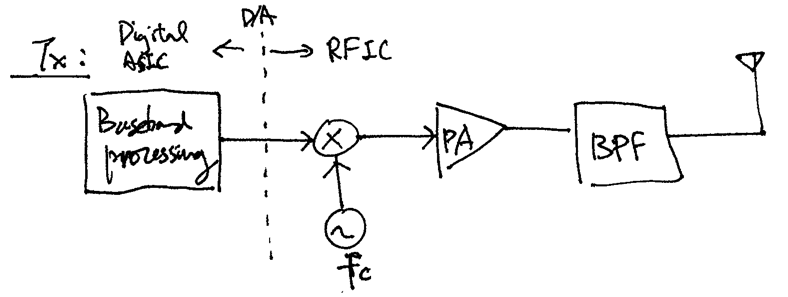 Tx:
Digital
ASIC
D/A
RFIC
Baseband
processing
X
PA
BPF
~
fc